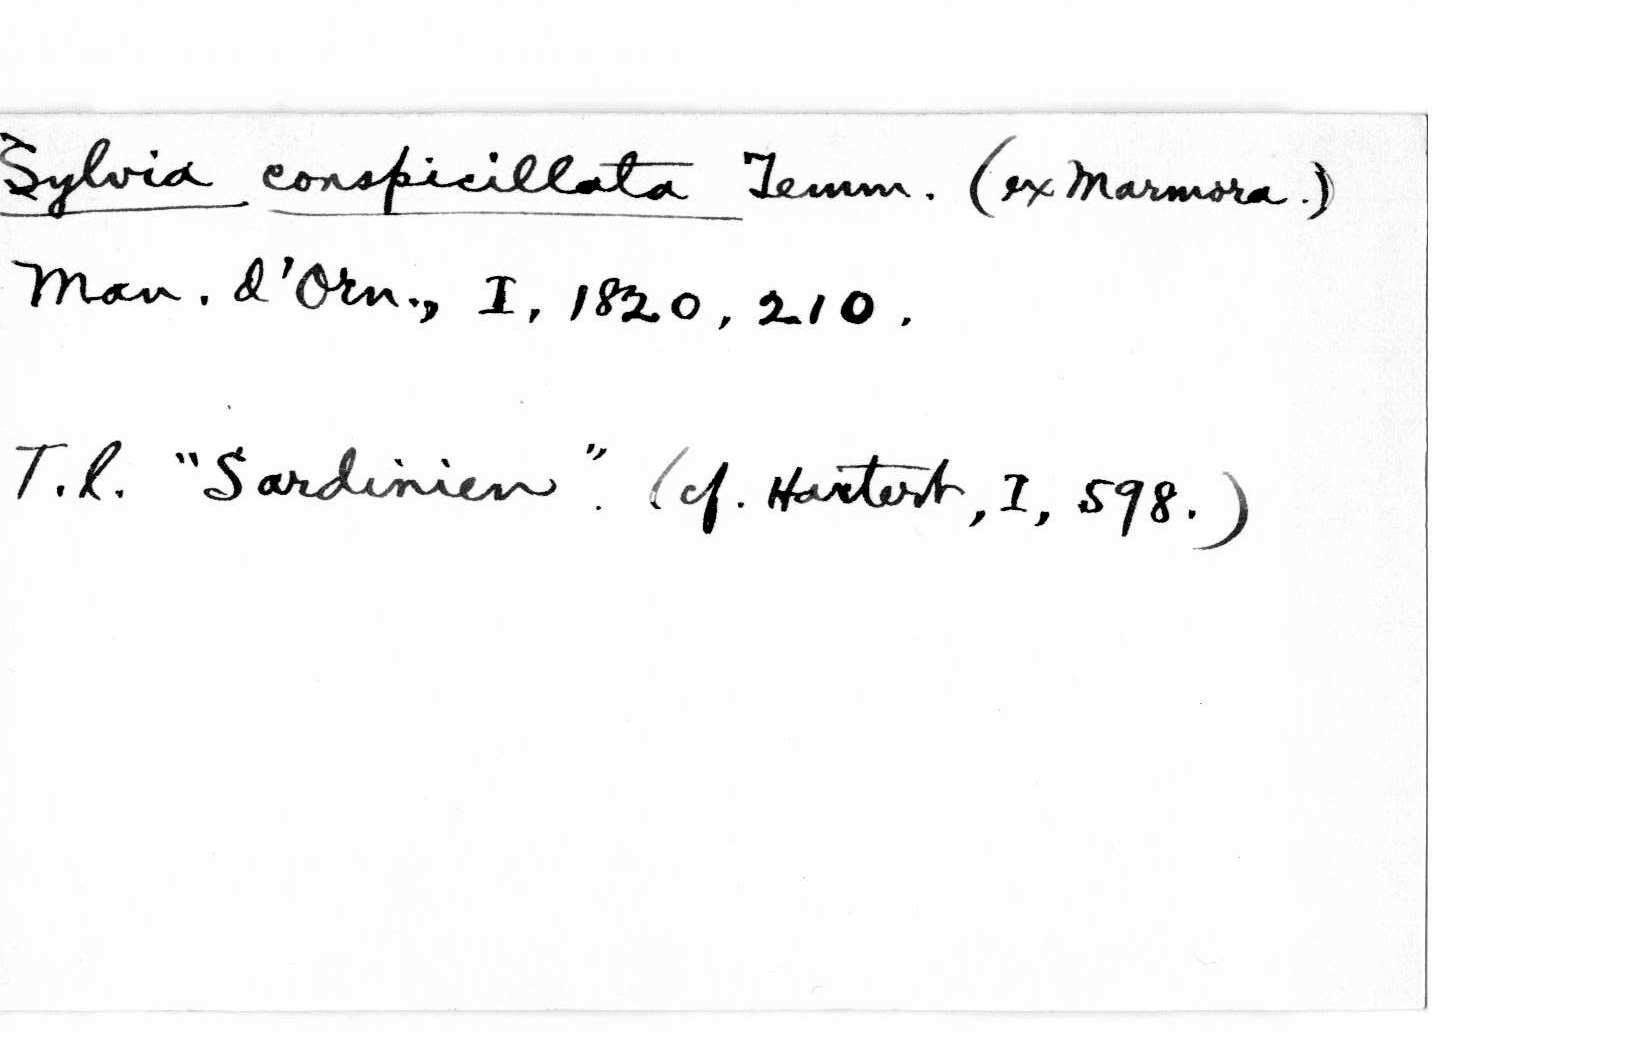 Sylvia conspicillata Temm. (ex Marmora.)
Man. d'Orn., I, 1820, 210.
T.l. "Sardinien". (cf. Hartert, I, 598.)